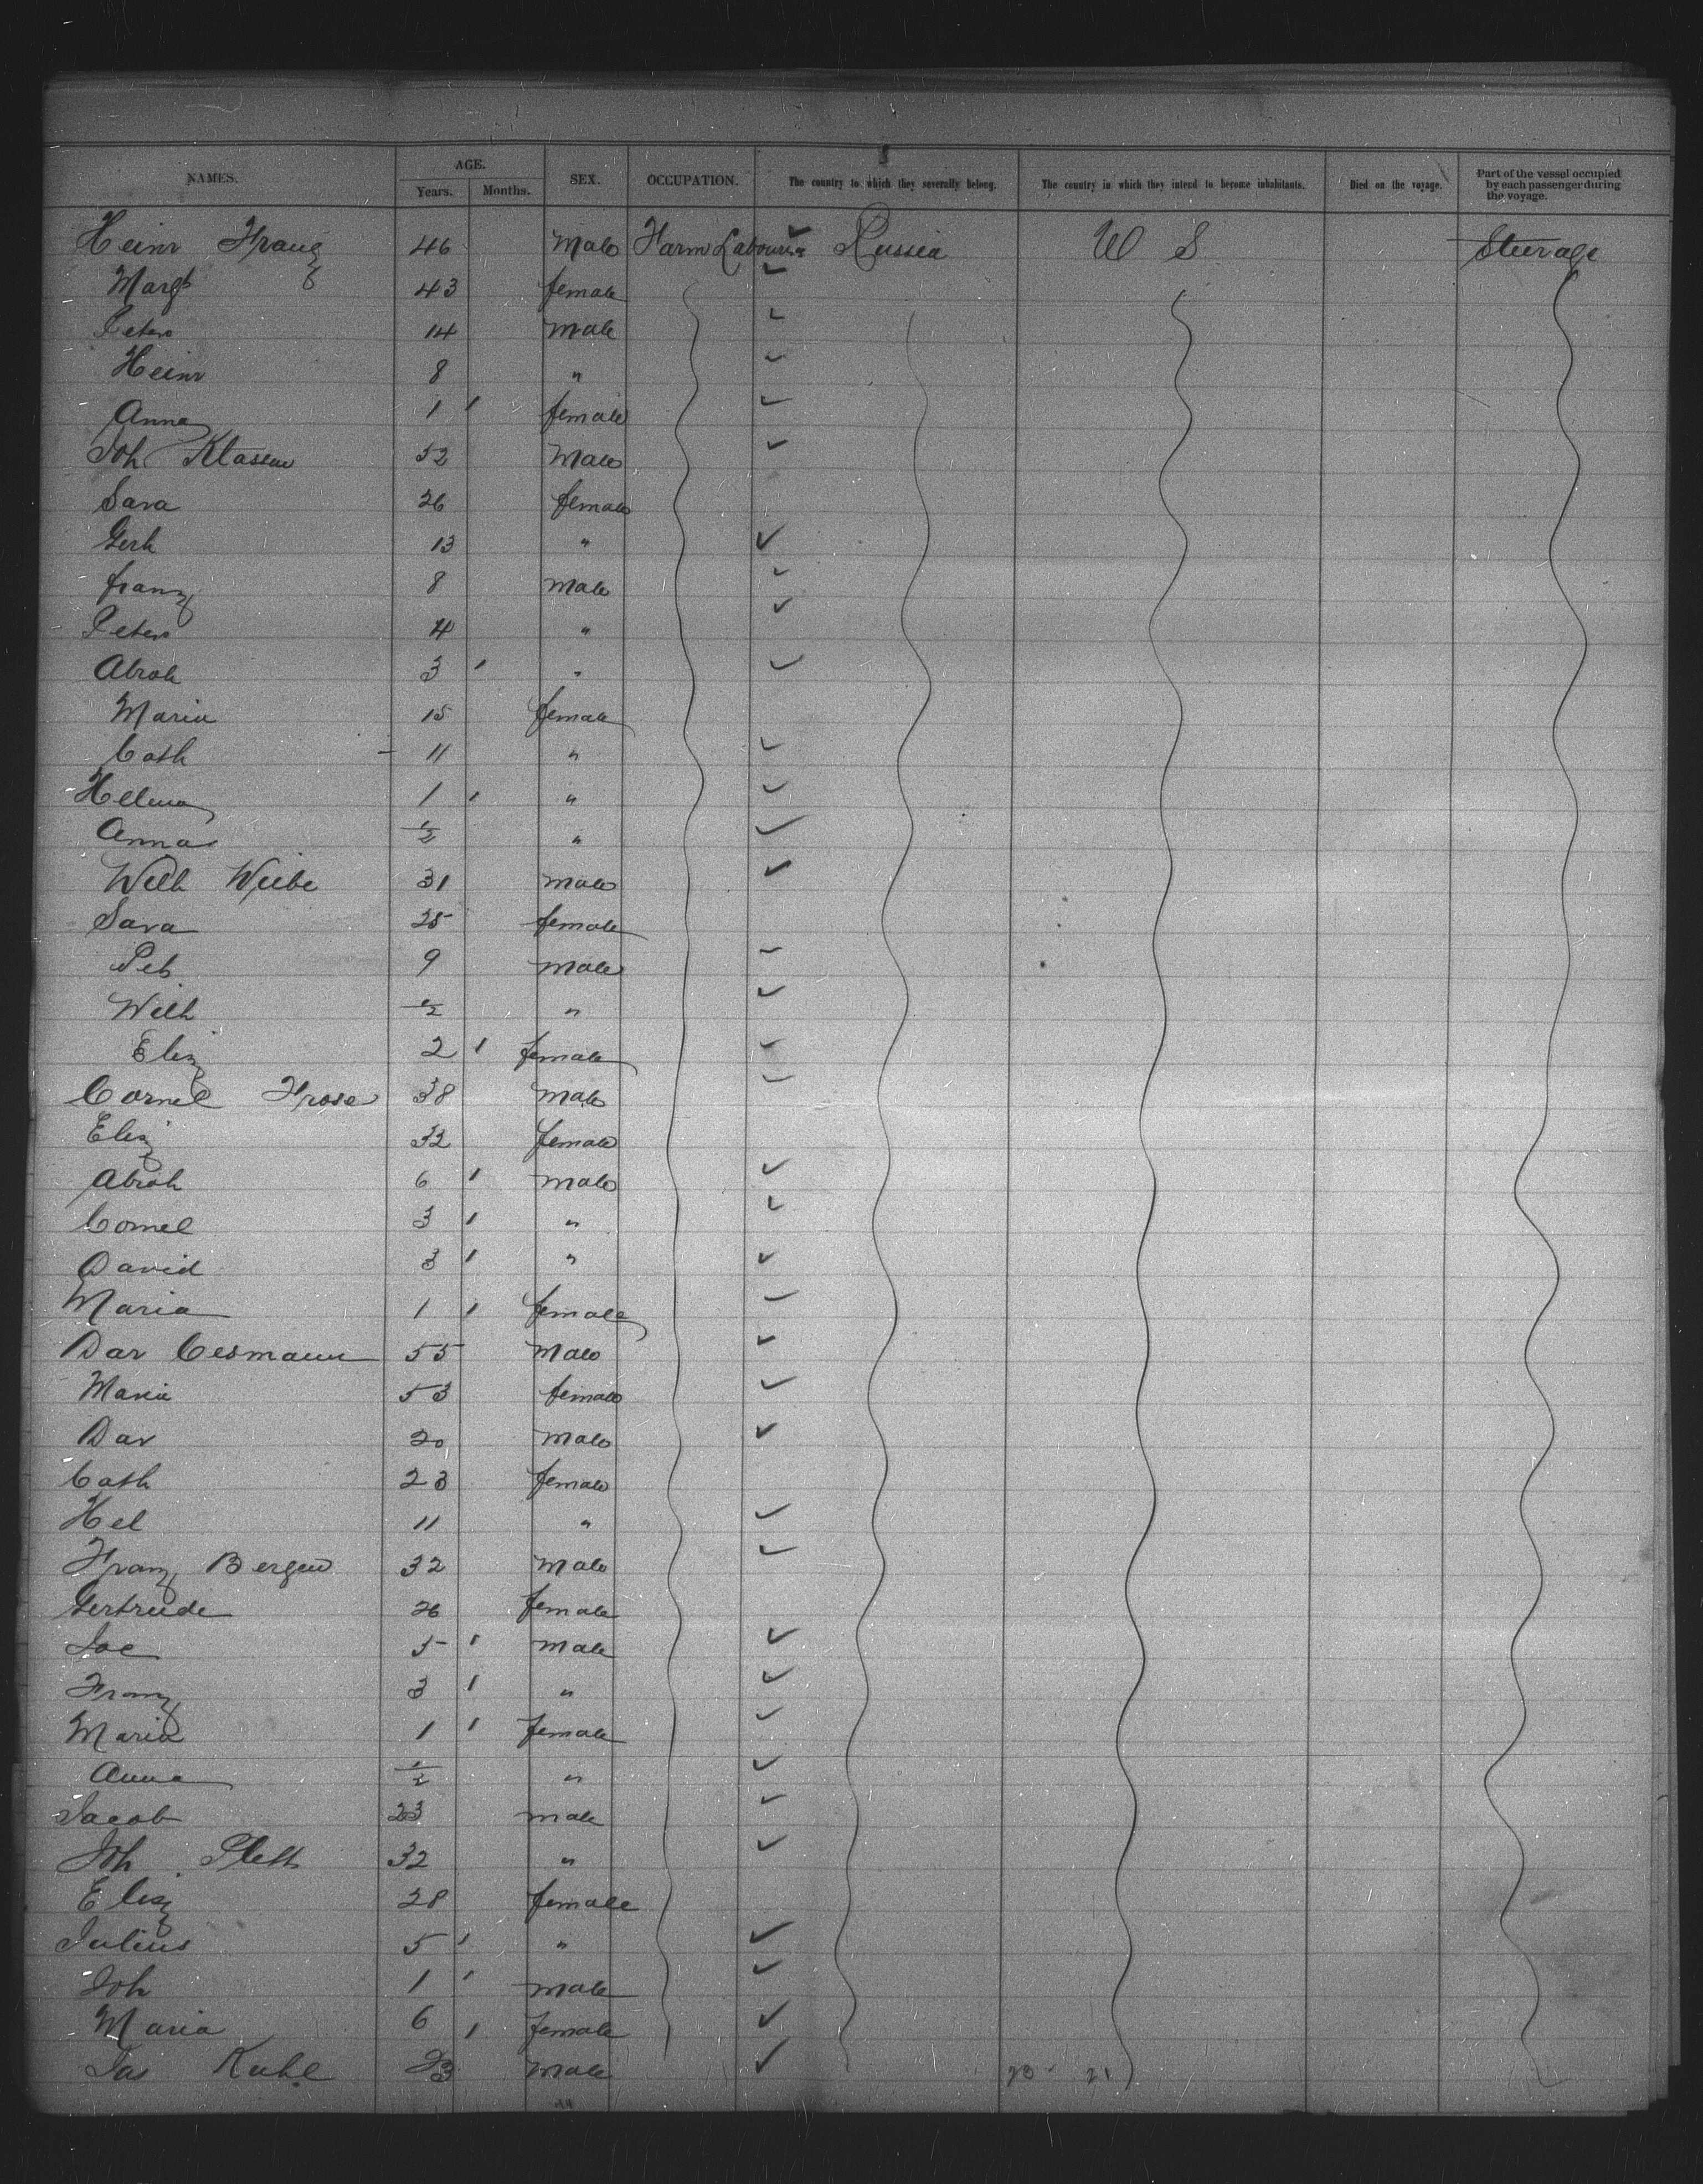 NAMES. AGE. Years. Months. SEX. OCCUPATION. The country to which they severally belong. The country in which they intend to become inhabitants. Died on the voyage. Part of the vessel occupied by each passenger during the voyage.
Heinr Franz 46 Male Farm Labourer Russia U S Steerage
Margt 43 female
Peter 14 male
Heinr 8 "
Anna 1 ' female
Joh Klassen 52 Male
Sara 26 female
Gerh 13 "
franz 8 male
Peter 4 "
Abrah 3 ' "
Maria 15 female
Cath 11 "
Helena 1 ' "
Anna ½ "
Wilh Wiebe 31 male
Sara 25 female
Pet 9 male
Wilh ½ "
Eliz 2 ' female
Cornel Frose 38 male
Eliz 32 female
Abrah 6 ' male
Cornel 3 ' "
David 3 ' "
Maria 1 ' female
Dav Cesmann 55 Male
Maria 53 female
Dav 20 male
Cath 23 female
Hel 11 "
Franz Bergen 32 Male
Gertrude 26 female
Jac 5 ' male
Franz 3 ' "
Maria 1 ' female
Anna ½ "
Jacob 23 male
Joh Plett 32 "
Eliz 28 female
Julius 5 ' "
Joh 1 ' male
Maria 6 ' female
Jas Kuhl 23 Male